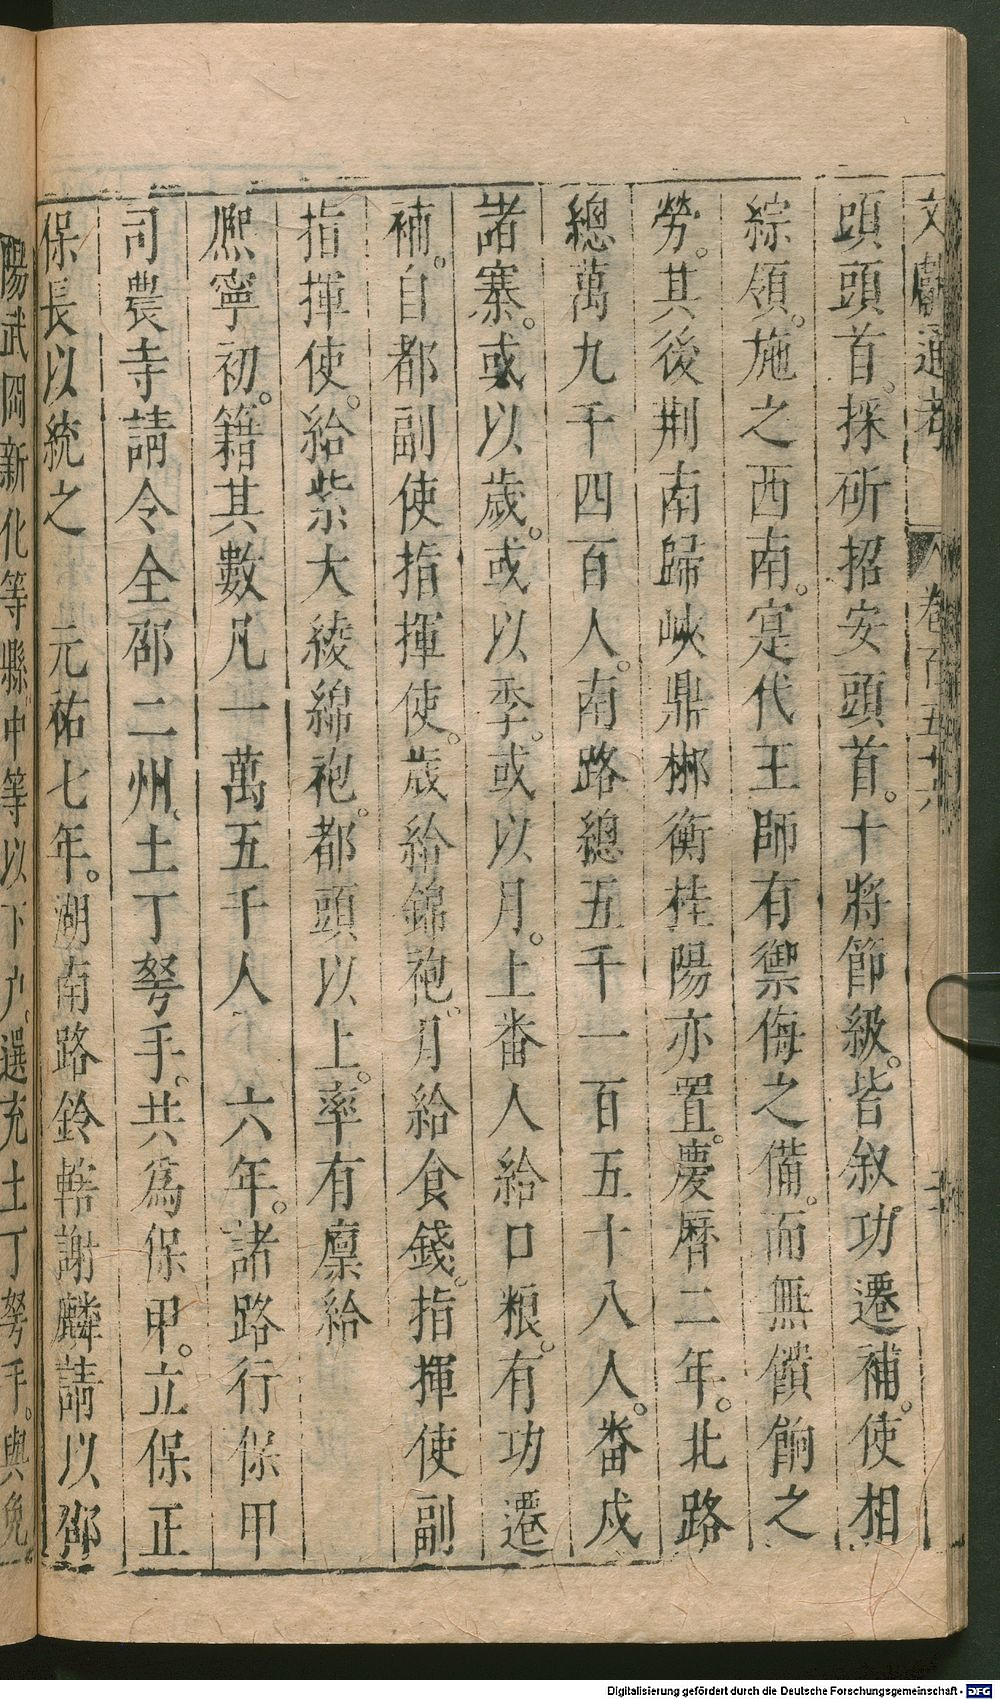 文獻通考 卷百五十六
頭頭首。採斫招安頭首。十將節級。皆叙功遷補。使相
綜領。施之西南。寔代王師有禦侮之備。而無饋餉之
勞。其後荆南歸峽鼎郴衡桂陽亦置。慶曆二年。北路
總萬九千四百人。南路總五千一百五十八人。番戍
諸寨。或以歲。或以季。或以月。上番人給口粮。有功遷
補。自都副使指揮使。歲給錦袍。月給食錢。指揮使副
指揮使。給紫大綾綿袍。都頭以上。率有廪給
熈寧初。籍其數凡一萬五千人 六年。諸路行保甲
司農寺請令全邵二州。土丁弩手。共爲保甲。立保正
保長以統之 元祐七年。湖南路鈐轄謝麟請以邵
陽武岡新化等縣中等以下户。選充土丁弩手。與免
Digitalisierung gefördert durch die Deutsche Forschungsgemeinschaft - DFG